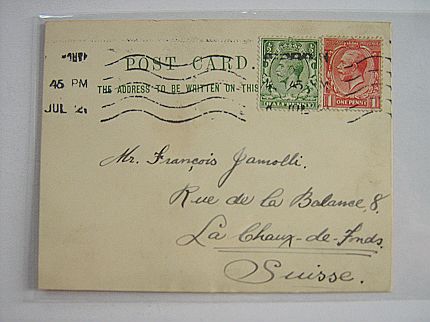 45 PM
JUL 2
POST CARD
THE ADDRESS TO BE WRITTEN ON THIS
ONE PENNY
Mr. François Jamolli.
Rue de la Balance, 8.
La Chaux-de-Fonds.
Suisse.